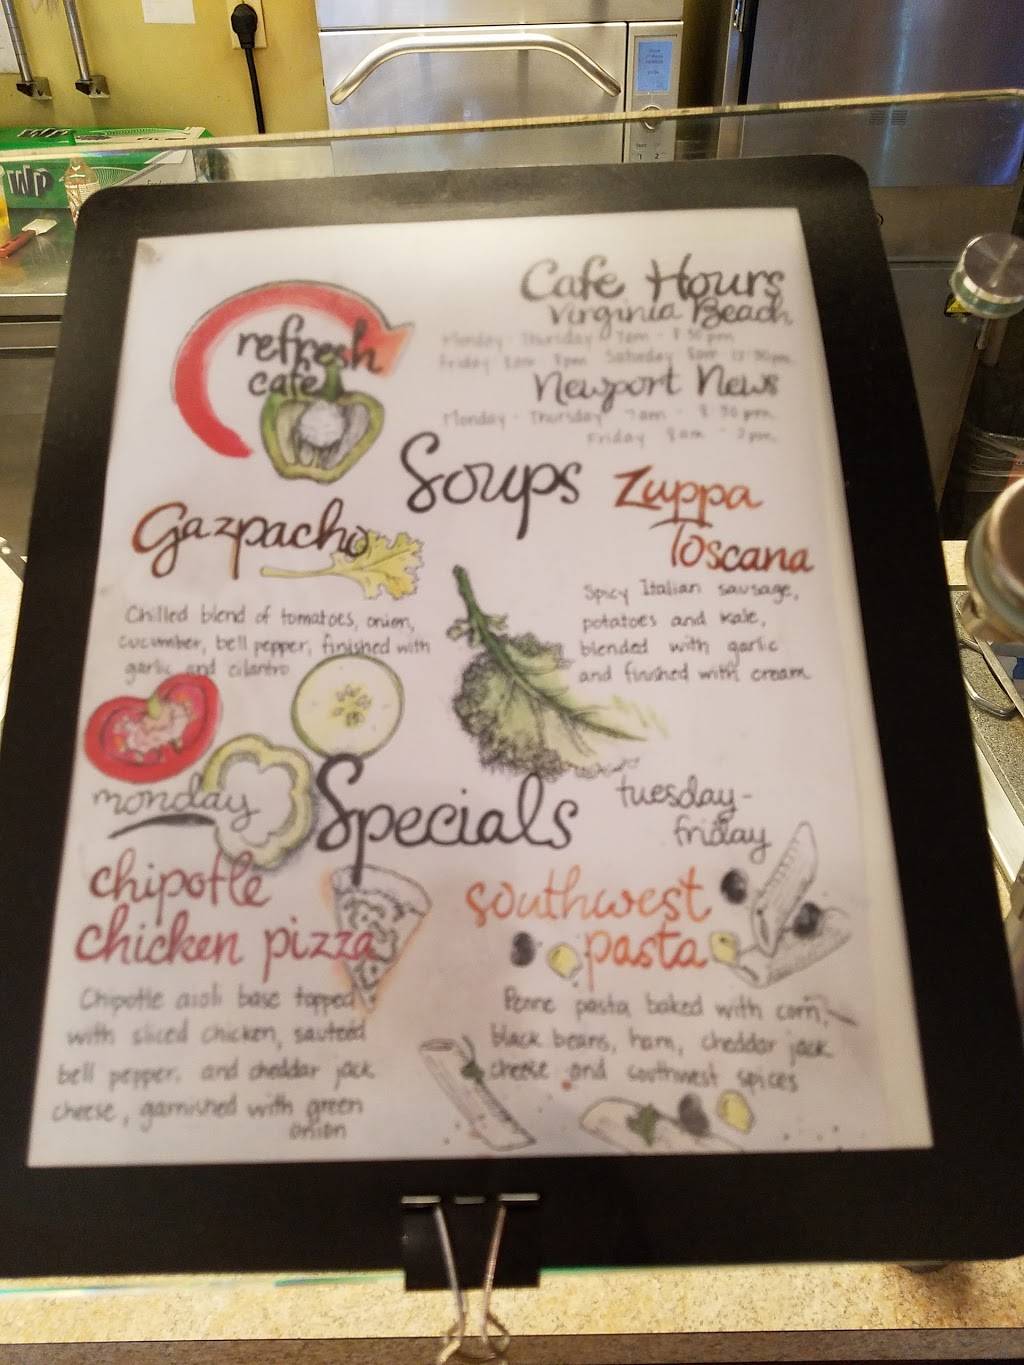 refresh
cafe
Cafe Hours
Virginia Beach
Monday - Thursday 7am - 8:30pm
Friday 8am - 3pm Saturday 8am -
Newport News
Monday - Thursday 7am - 8:30pm
Friday 8am - 3pm
Soups
Gazpacho
Chilled blend of tomatoes, onion,
cucumber, bell pepper, finished with
garlic and cilantro
Zuppa
Toscana
Spicy Italian sausage,
potatoes and kale,
blended with garlic
and finished with cream
Specials
monday
chipotle
chicken pizza
Chipotle aioli base topped
with sliced chicken, sauteed
bell pepper, and cheddar jack
cheese, garnished with green
onion
tuesday-
friday
southwest
pasta
Penne pasta baked with corn,
black beans, ham, cheddar jack
cheese and southwest spices